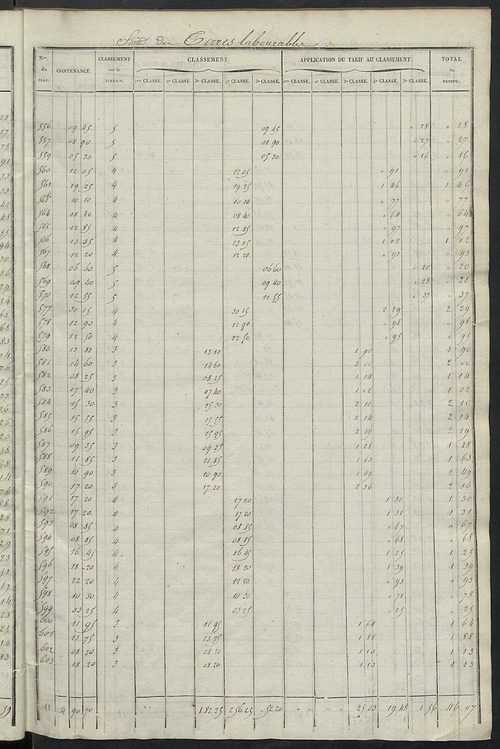 Suite des Terres labourables
Nos. du PLAN. CONTENANCE. CLASSEMENT sur le TERRAIN. CLASSEMENT. APPLICATION DU TARIF AU CLASSEMENT. TOTAL du REVENU.
1re CLASSE. 2e CLASSE. 3e CLASSE. 4e CLASSE. 5e CLASSE. 1re CLASSE. 2e CLASSE. 3e CLASSE. 4e CLASSE. 5e CLASSE.
556 09 45 5 09 45 " 28 " 28
557 08 90 5 08 90 " 27 " 27
559 05 30 5 05 30 " 16 " 16
560 12 05 4 12 05 " 91 " 91
561 19 25 4 19 25 1 46 1 46
10 10 4 10 10 " 77 " 77
564 08 40 4 08 40 " 64 " 64
565 12 85 4 12 85 " 97 " 97
566 13 35 4 13 35 1 02 1 02
567 12 20 4 12 20 " 93 " 93
568 06 60 5 06 60 " 20 " 20
569 09 40 5 09 40 " 28 " 28
570 12 55 5 12 55 " 37 " 37
577 30 15 4 30 15 2 29 2 29
578 12 90 4 12 90 " 98 " 98
579 12 50 4 12 50 " 95 " 95
580 13 80 3 13 80 1 90 1 90
581 14 60 3 14 60 2 02
582 08 25 3 08 25 1 14 1 14
583 07 40 3 07 40 1 02 1 02
584 15 30 3 15 30 2 10 2 10
585 15 55 3 15 55 2 14 2 14
586 15 95 3 15 95 2 19
587 09 35 3 09 35 1 28 1 28
588 11 85 3 11 85 1 63 1 63
589 10 90 3 10 90 1 49 1 49
590 17 20 3 17 20 2 36 2 36
591 17 20 4 17 20 1 30 1 30
592 17 20 4 17 20 1 31 1 31
593 08 85 4 08 85 " 67 " 67
594 08 85 4 08 85 " 68 " 68
595 16 45 4 16 45 1 25 1 25
596 18 20 4 18 20 1 39 1 39
597 12 20 4 12 20 " 93 " 93
598 10 30 4 10 30 " 78 " 78
599 03 25 4 03 25 " 25 " 25
600 11 95 3 11 95 1 64 1 64
601 13 75 3 13 75 1 88 1 88
602 08 20 3 08 20 1 13 1 13
603 08 20 3 08 20 1 13 1 13
4 90 70 1.82 25 2.56 25 52 20 25 03 19 48 1 56 46 07